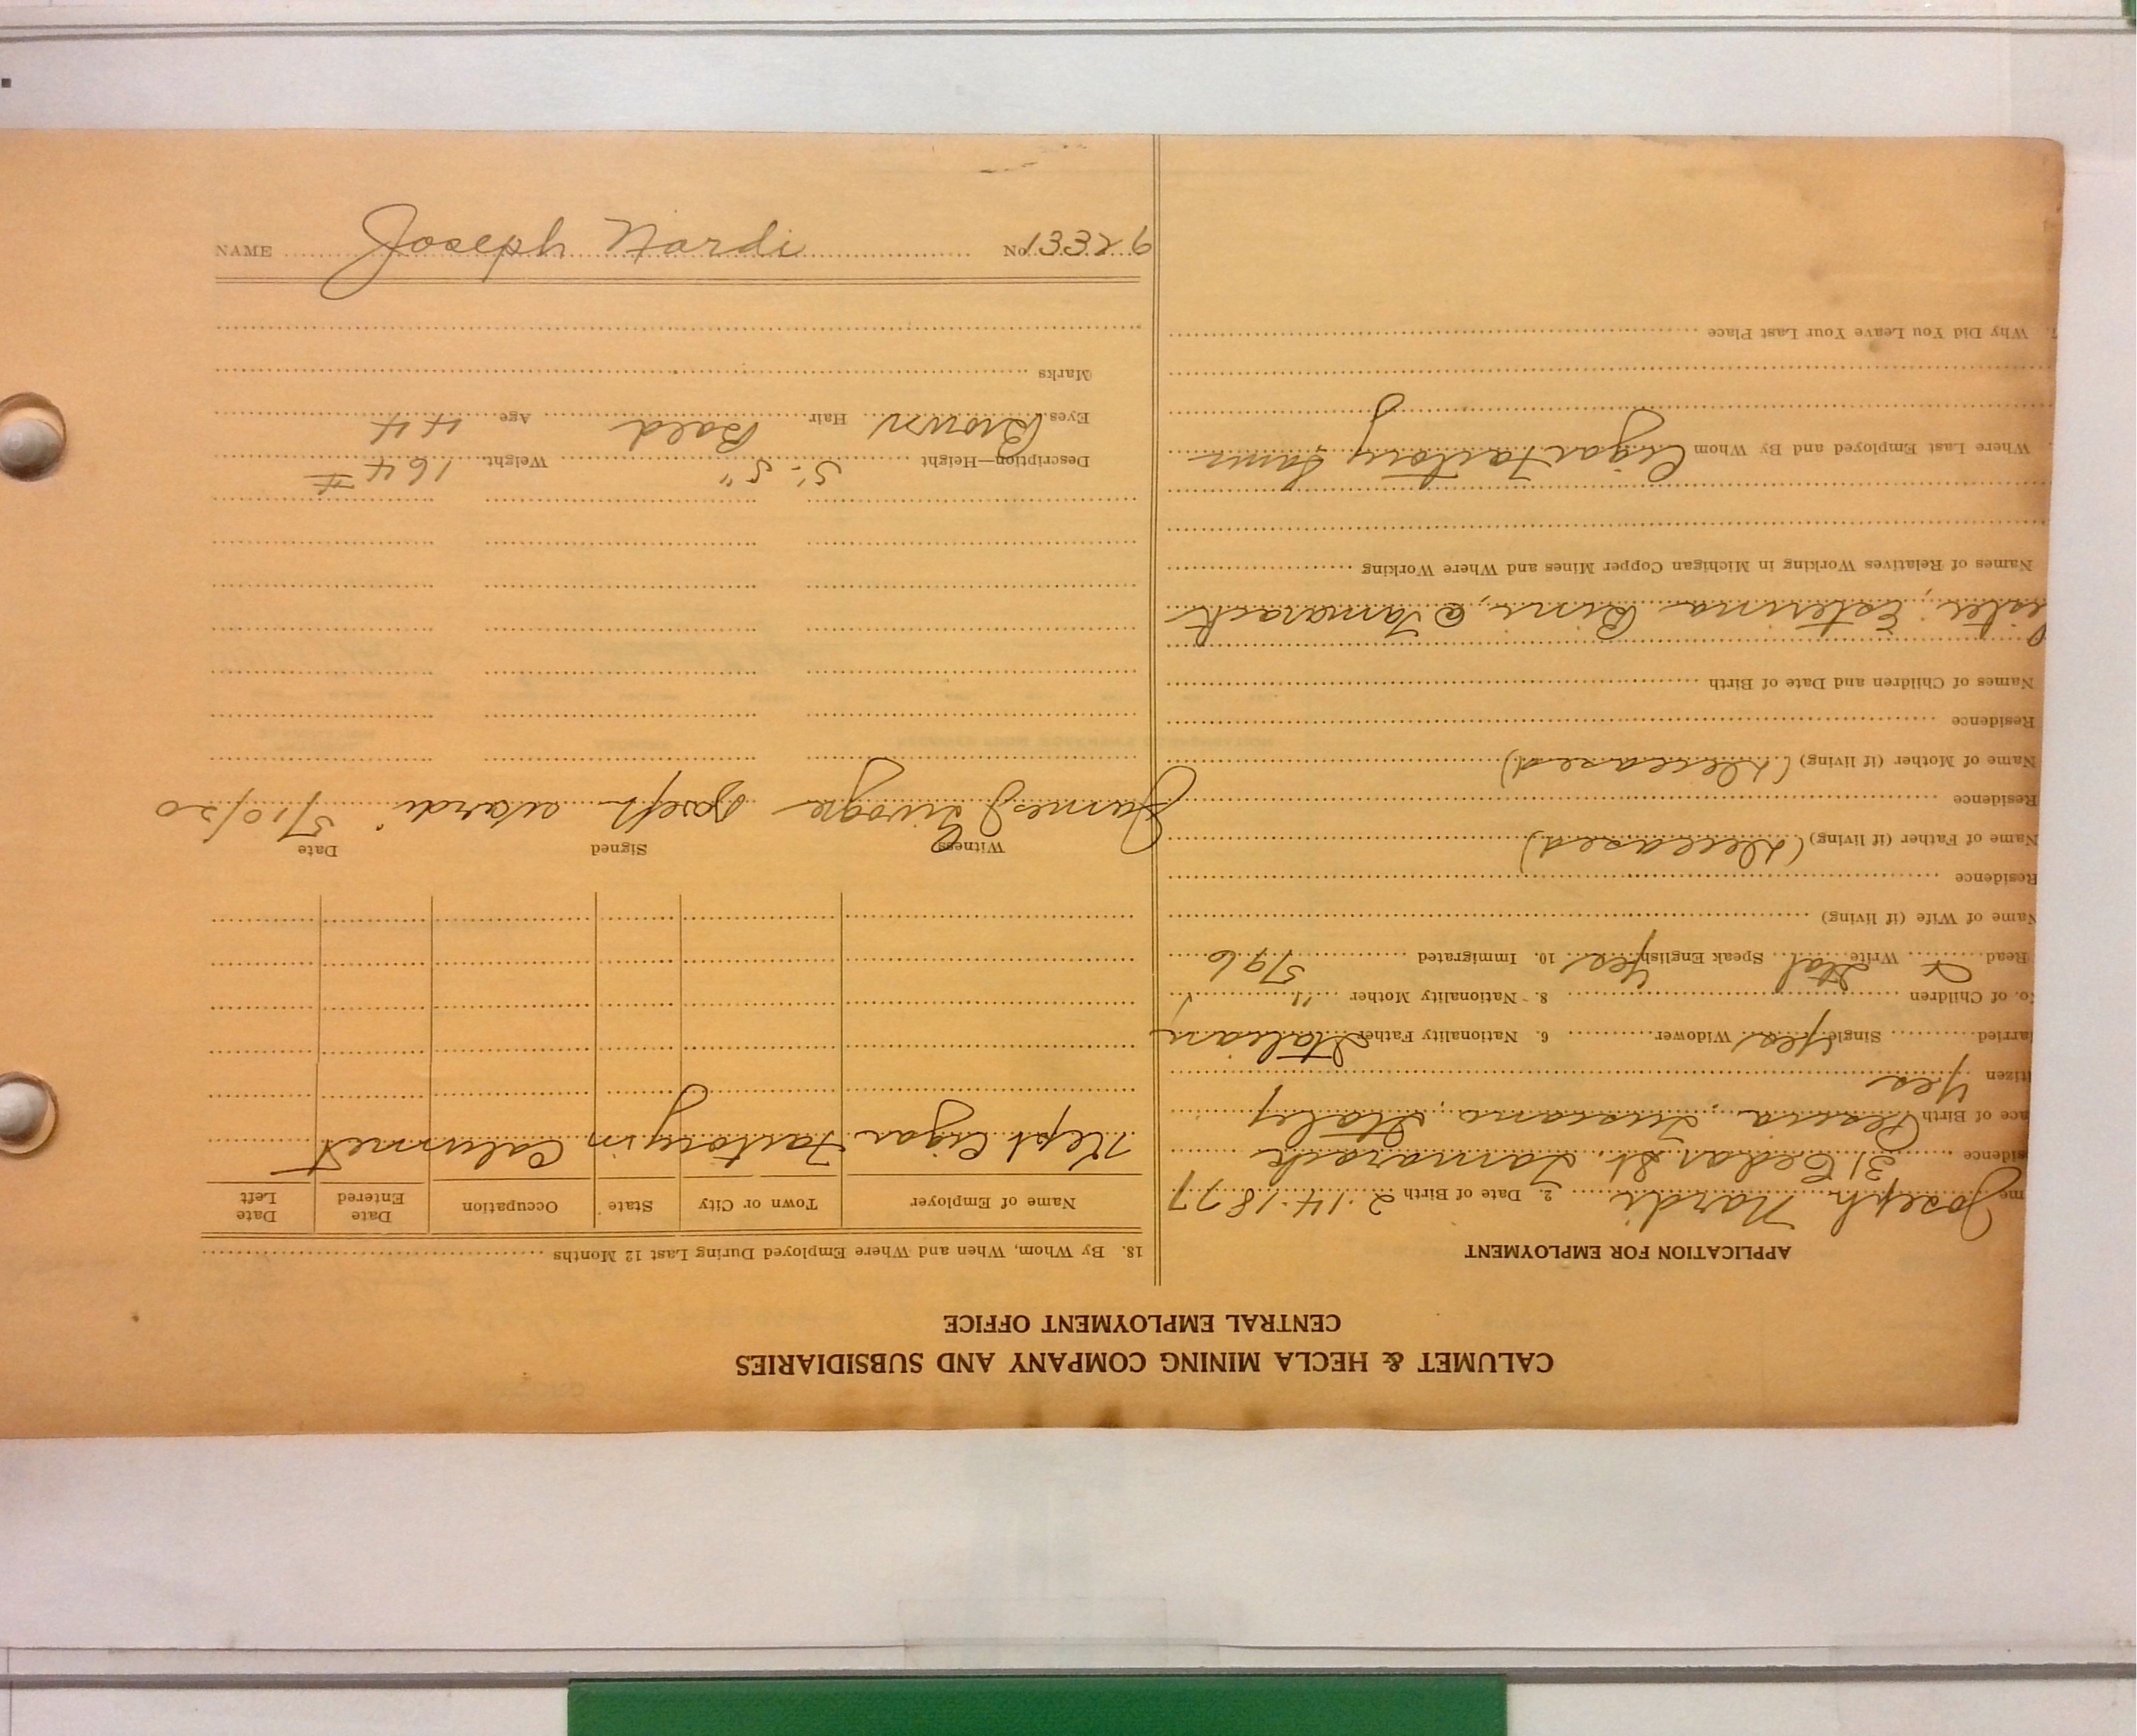 CALUMET & HECLA MINING COMPANY AND SUBSIDIARIES
CENTRAL EMPLOYMENT OFFICE
APPLICATION FOR EMPLOYMENT
me Joseph Nardi 2. Date of Birth 2-14-1877
sidence 31 Cedar St. Tamarack
ace of Birth Pescia, Tuscano, Italy
itizen Yes
arried Single Yes Widower 6. Nationality Father Italian
o. of Children 8. Nationality Mother "
Read Write Ital Speak English Yes 10. Immigrated 5/96
Name of Wife (if living)
Residence
Name of Father (if living) (Deceased)
Residence
Name of Mother (if living) (Deceased)
Residence
Names of Children and Date of Birth
Sister, Esterina @ Tamarack
Names of Relatives Working in Michigan Copper Mines and Where Working
Where Last Employed and By Whom Cigar Factory
7. Why Did You Leave Your Last Place
18. By Whom, When and Where Employed During Last 12 Months
Name of Employer Town or City State Occupation Date Entered Date Left
Kept Cigar Factory in Calumet
Witness Signed Date
James Joseph Nardi 5/10/20
Description—Height 5'-5" Weight 164 #
Eyes Brown Hair Bald Age 44
Marks
NAME Joseph Nardi No. 13326